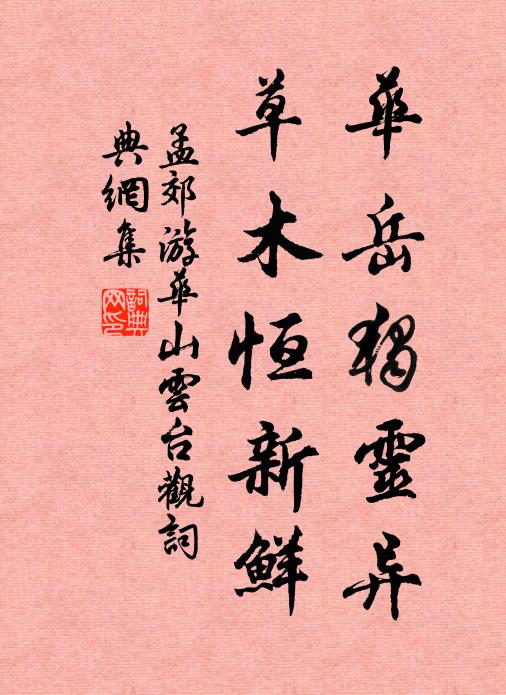 華岳獨靈异
草木恒新鮮
孟郊游華山雲台觀詞
典網集
詞典网印